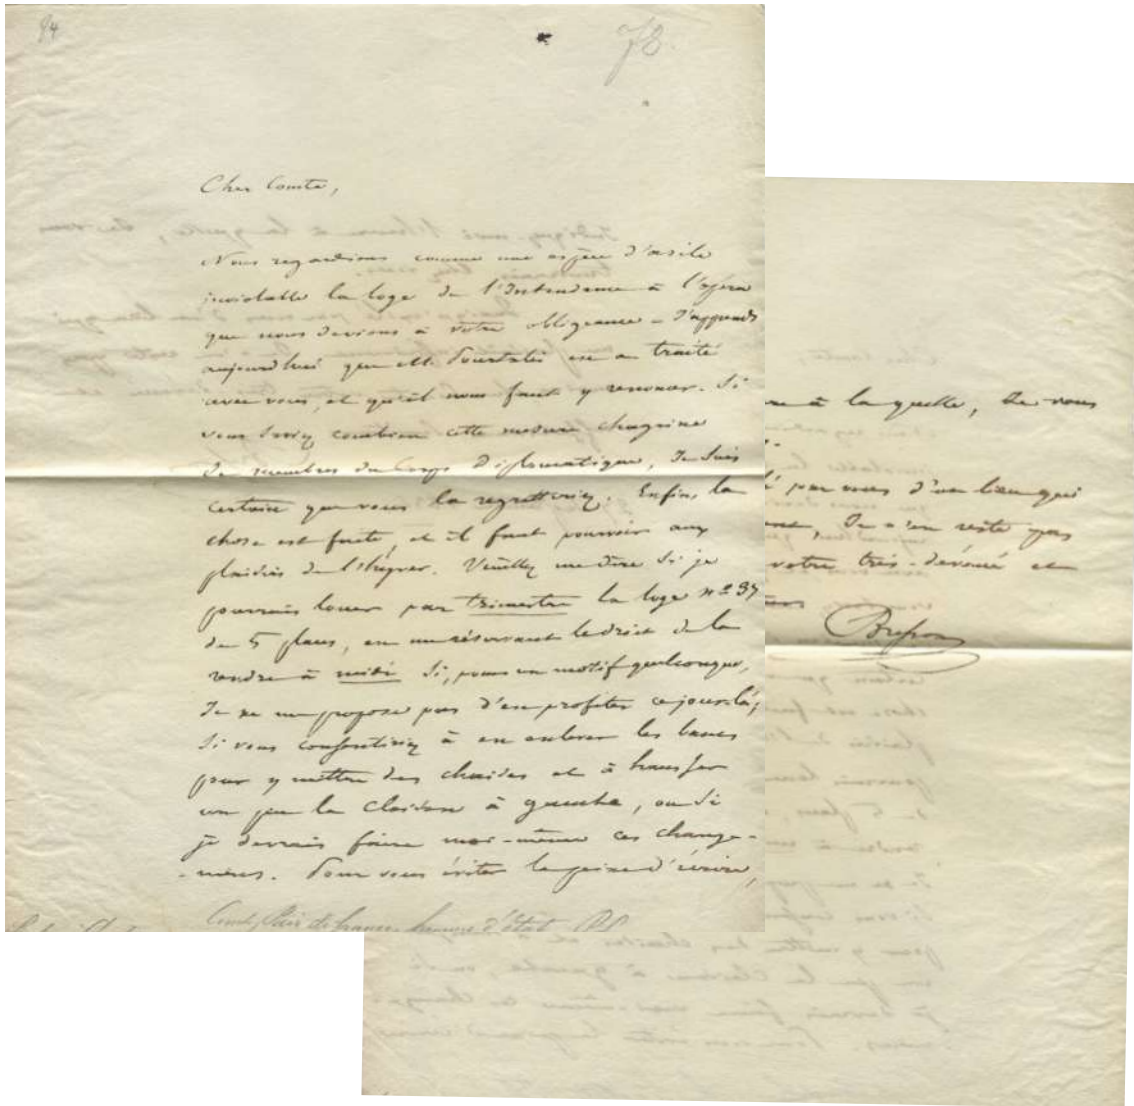 94
78
Cher Comte,
Nous regardions comme une espèce d'asile
inviolable la loge de l'Intendance à l'opéra
que nous devions à votre obligeance – J'apprends
aujourdhui que M. Pourtalès en a traité
avec vous, et qu'il nous faut y renoncer. Si
vous saviez combien cette mesure chagrine
de membres du Corps Diplomatique, Je suis
certain que vous la regretteriez. Enfin, la
chose est faite, et il faut pourvoir aux
plaisirs de l'hyver. Veuillez me dire si je
pourrais louer par trimestre la loge nº 37
de 5 places, en me réservant le droit de la
rendre à midi si, pour un motif quelconque,
Je ne me propose pas d'en profiter ce jour-là;
Si vous consentiriez à en enlever les bancs
pour y mettre des chaises et à hausser
un peu la cloison à gauche, ou si
je devrais faire moi-même ces change-
-mens. Pour vous éviter la peine d'écrire,
Comte, Pair de france, homme d'état
à laquelle, Je vous
par vous d'un lieu qui
Je n'en reste pas
votre très-dévoué et
Bresson